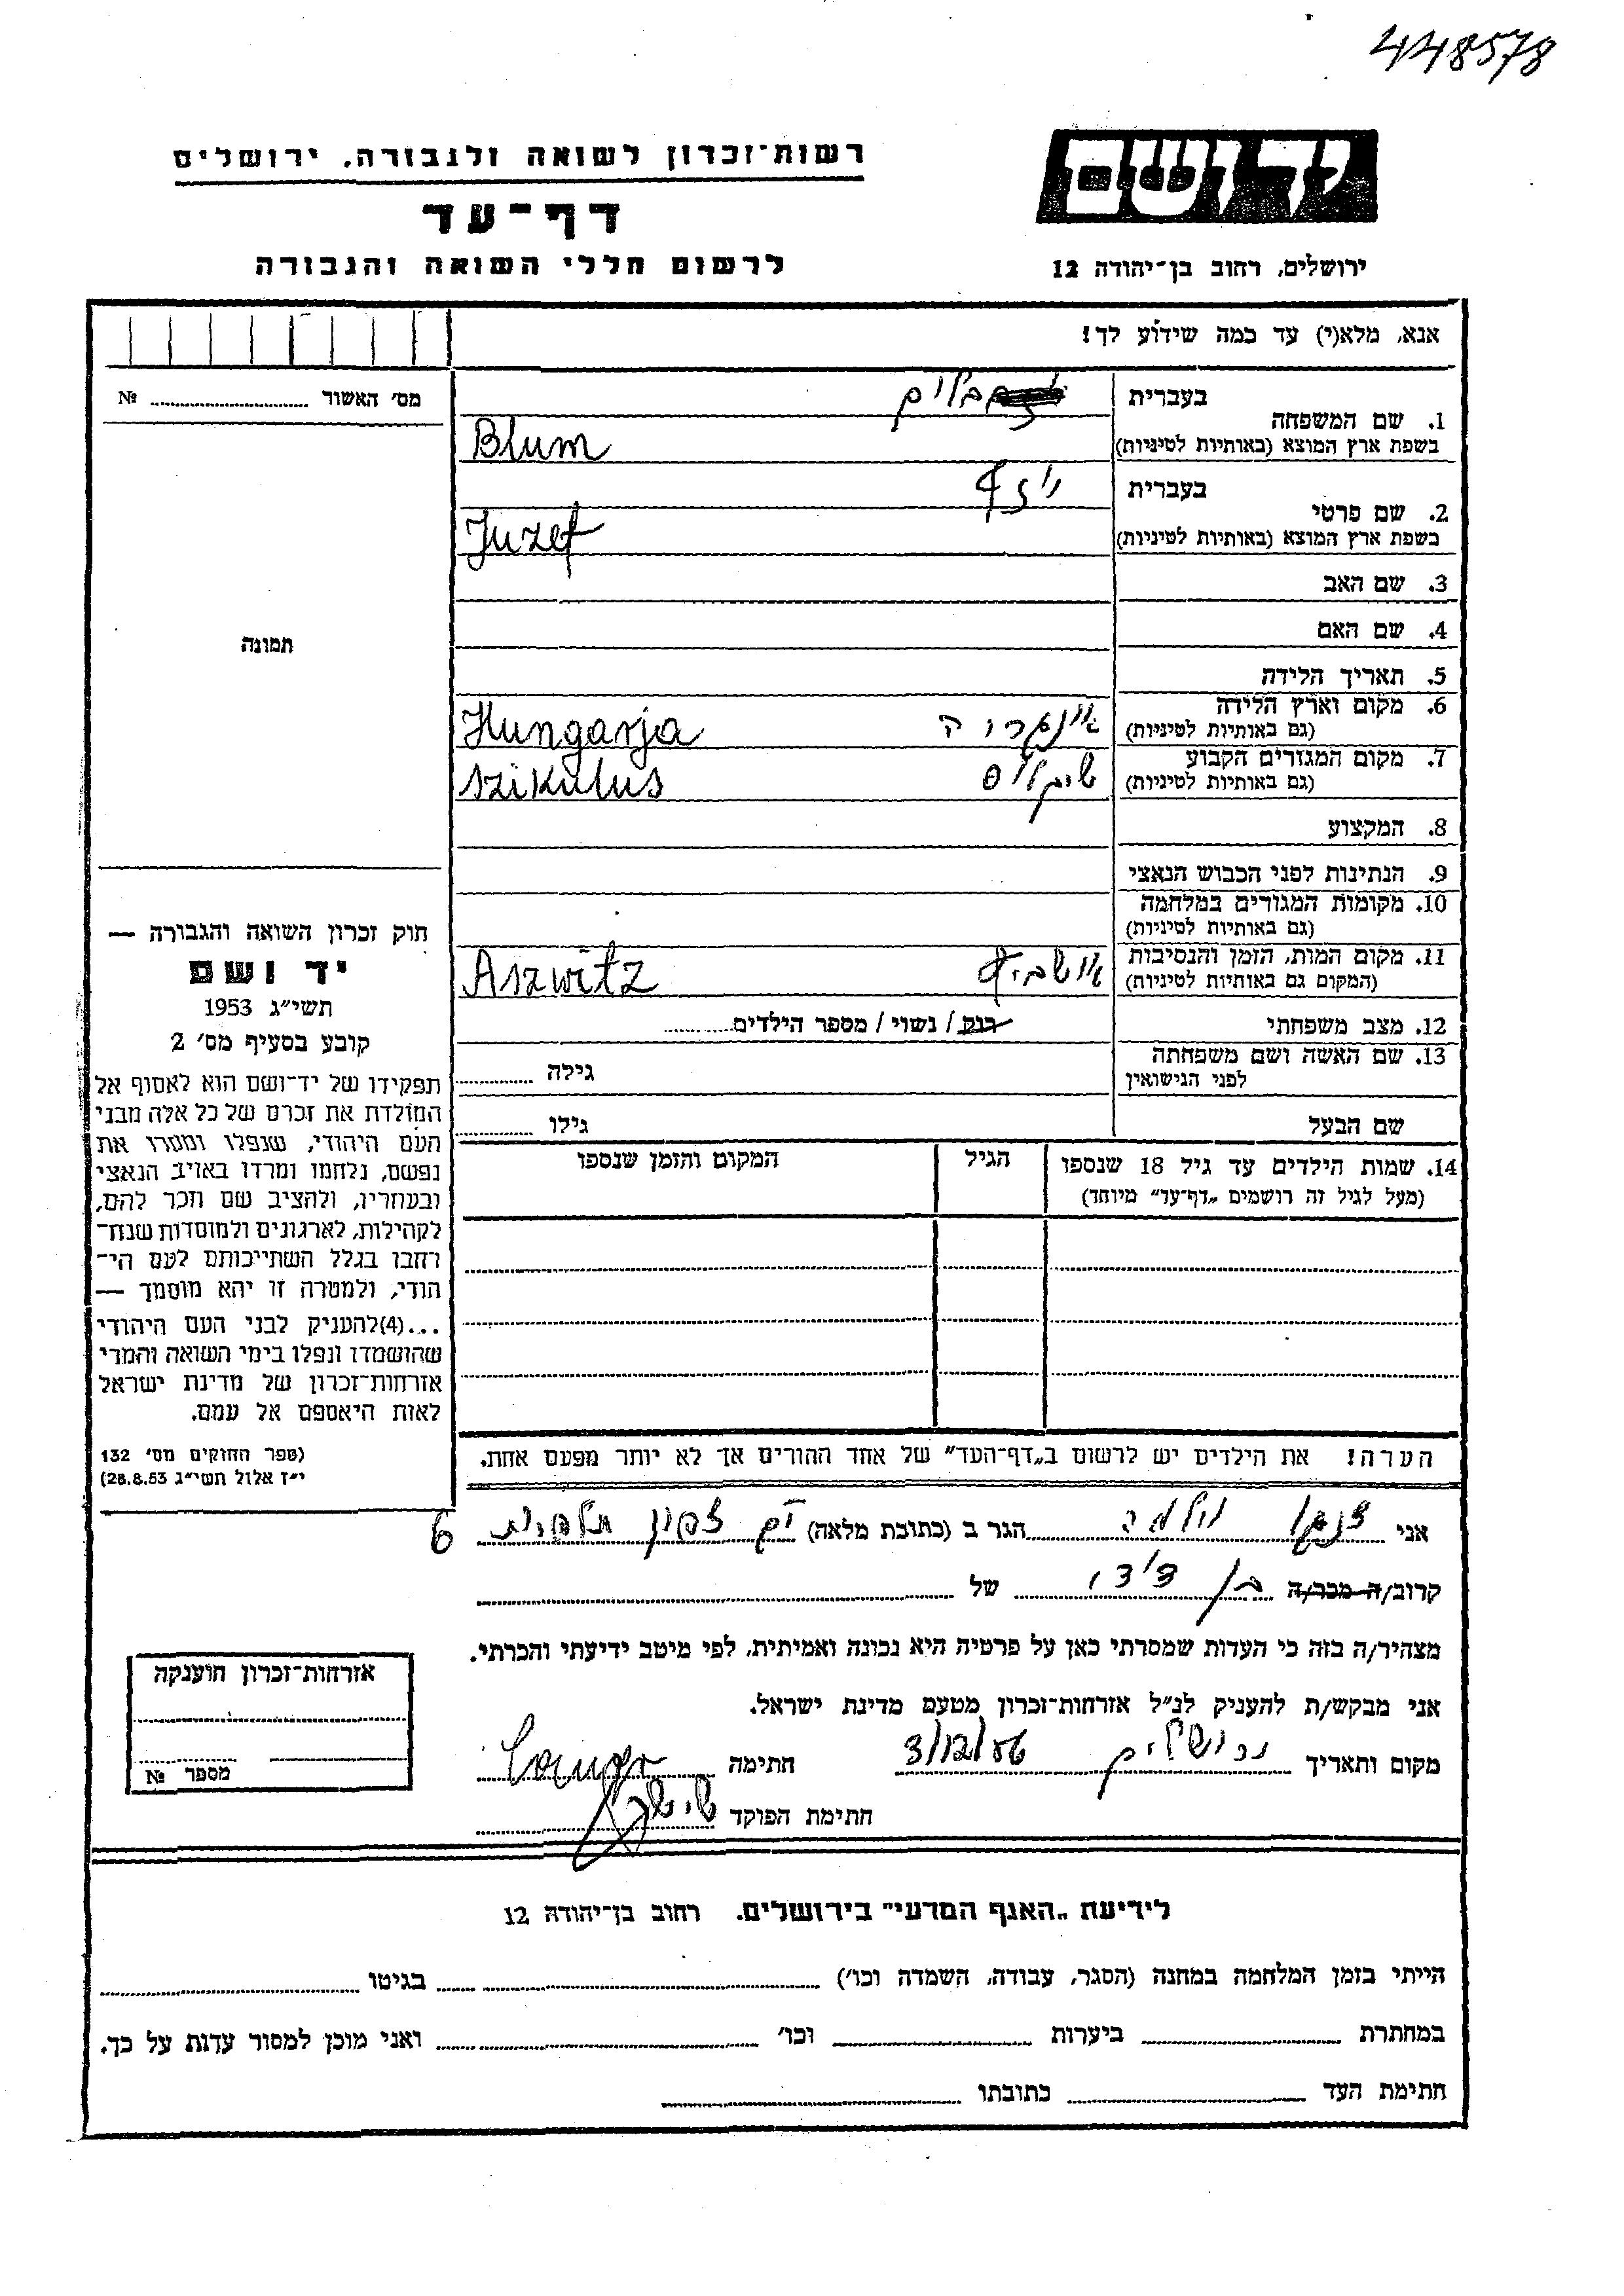 448578
יד ושם
רשות־זכרון לשואה ולגבורה, ירושלים
דף־עד
לרשום חללי השואה והגבורה
ירושלים, רחוב בן־יהודה 12
אנא, מלא(י) עד כמה שידוע לך!
מס׳ האשור № 
תמונה
1. שם המשפחה
בעברית בלום
בשפת ארץ המוצא (באותיות לטיניות) Blum
2. שם פרטי
בעברית
בשפת ארץ המוצא (באותיות לטיניות) Juzef
3. שם האב
4. שם האם
5. תאריך הלידה
6. מקום וארץ הלידה
(גם באותיות לטיניות) Hungarja
7. מקום המגורים הקבוע
(גם באותיות לטיניות) szikulus
8. המקצוע
9. הנתינות לפני הכבוש הנאצי
10. מקומות המגורים במלחמה
(גם באותיות לטיניות)
11. מקום המות, הזמן והנסיבות
(המקום גם באותיות לטיניות) אושביץ Aszwitz
12. מצב משפחתי רוק / נשוי / מספר הילדים
13. שם האשה ושם משפחתה
לפני הנישואין גילה
שם הבעל גילו
14. שמות הילדים עד גיל 18 שנספו
(מעל לגיל זה רושמים „דף־עד״ מיוחד)
הגיל
המקום והזמן שנספו
הערה! את הילדים יש לרשום ב„דף־העד״ של אחד ההורים אך לא יותר מפעם אחת.
חוק זכרון השואה והגבורה —
יד ושם
תשי״ג 1953
קובע בסעיף מס׳ 2
תפקידו של יד־ושם הוא לאסוף אל
המולדת את זכרם של כל אלה מבני
העם היהודי, שנפלו ומסרו את
נפשם, נלחמו ומרדו באויב הנאצי
ובעוזריו, ולהציב שם וזכר להם,
לקהילות, לארגונים ולמוסדות שנח־
רבו בגלל השתייכותם לעם הי־
הודי, ולמטרה זו יהא מוסמך —
...(4)להעניק לבני העם היהודי
שהושמדו ונפלו בימי השואה והמרי
אזרחות־זכרון של מדינת ישראל
לאות היאספם אל עמם.
(ספר החוקים מס׳ 132
י״ז אלול תשי״ג 28.8.53)
אני הגר ב (כתובת מלאה) תלפיות 6
קרוב/ה מכר/ה בן דודי של
מצהיר/ה בזה כי העדות שמסרתי כאן על פרטיה היא נכונה ואמיתית, לפי מיטב ידיעתי והכרתי.
אני מבקש/ת להעניק לנ״ל אזרחות־זכרון מטעם מדינת ישראל.
מקום ותאריך ירושלים 3/12/56 חתימה
חתימת הפוקד
אזרחות־זכרון הוענקה
מספר №
לידיעת „האגף המדעי״ בירושלים. רחוב בן־יהודה 12
הייתי בזמן המלחמה במחנה (הסגר, עבודה, השמדה וכו׳) בגיטו
במחתרת ביערות וכו׳ ואני מוכן למסור עדות על כך.
חתימת העד כתובתו